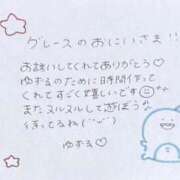 グレースのおにいさま!!
お誘いしてくれてありがとう♡
ゆずるのために時間作って
くれてすごく嬉しいです☺
またヌルヌルして遊ぼう
まってるね(˘ᵕ˘)
ゆずる♡